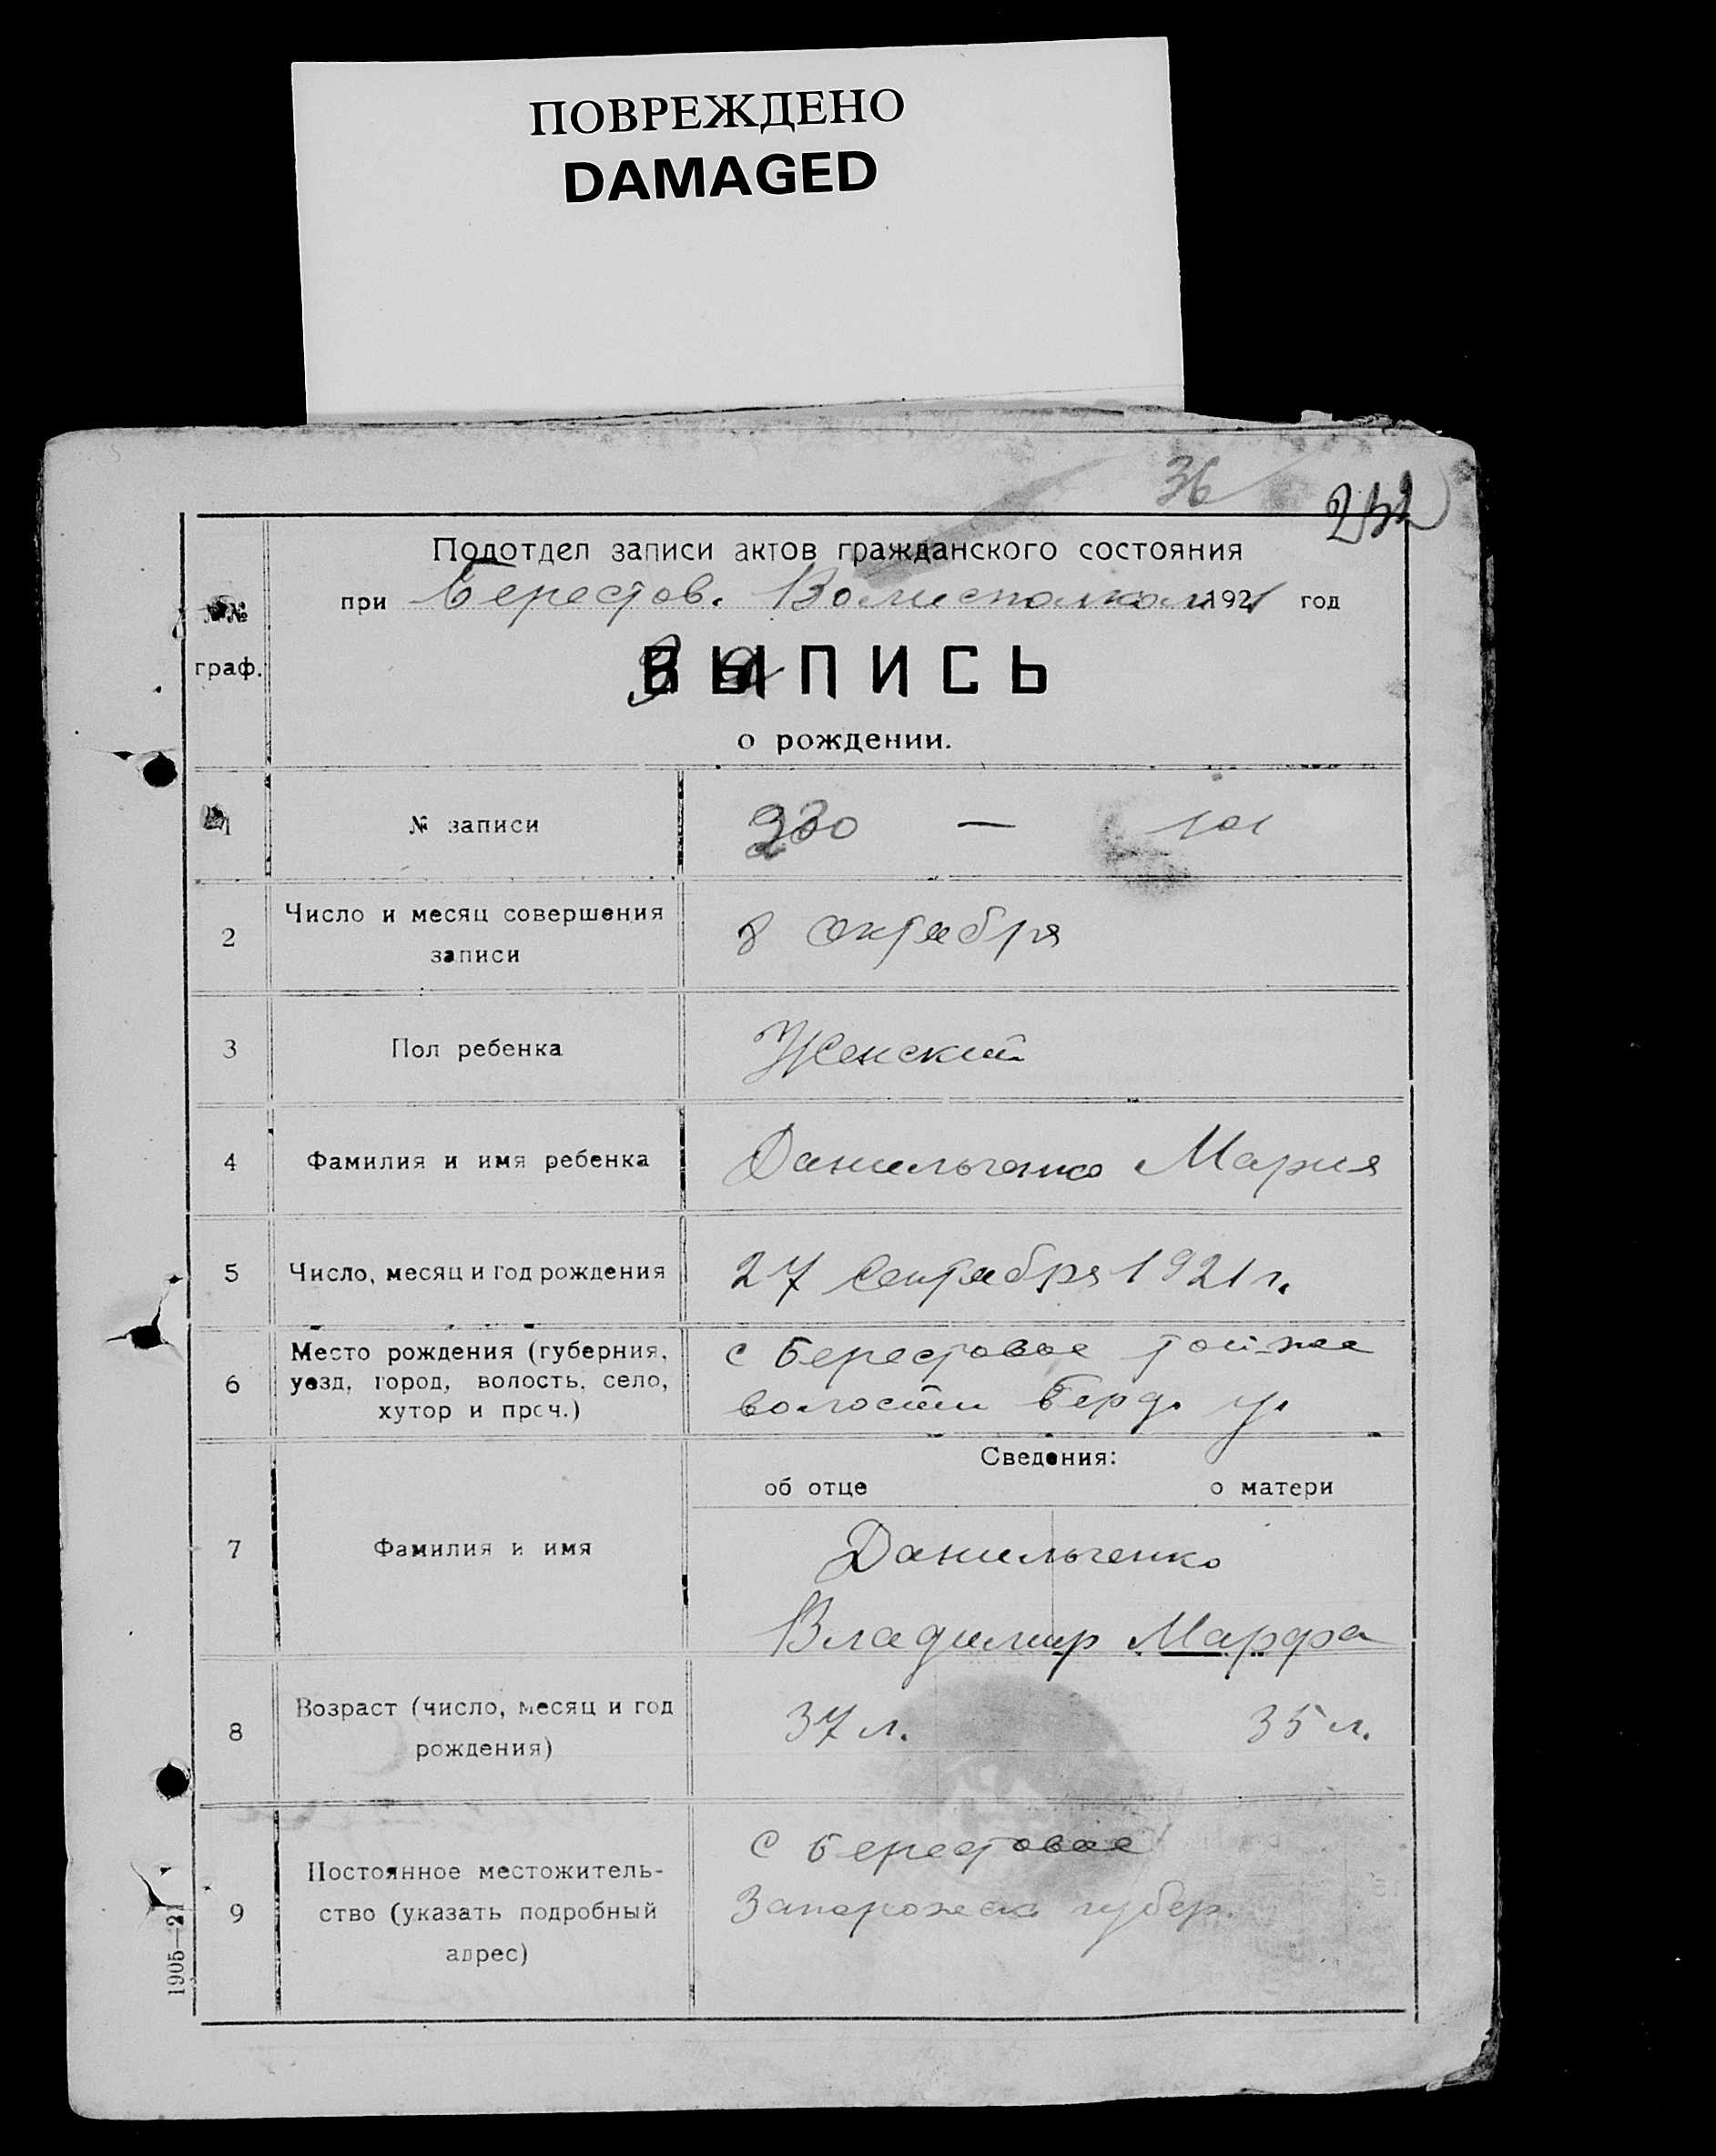 ПОВРЕЖДЕНО
DAMAGED
36
Подотдел записи актов гражданского состояния
при Берестов. Волисполкоме 1921 год
№№
граф.
ВЫПИСЬ
о рождении.
1 № записи 230 — 101
2 Число и месяц совершения 8 Октября
записи
3 Пол ребенка Женский
4 Фамилия и имя ребенка Данильченко Мария
5 Число, месяц и год рождения 27 Сентября 1921 г.
Место рождения (губерния, с Берестовое той-же
6 уезд, город, волость, село,
хутор и проч.) волости Берд. у.
Сведения:
об отце о матери
7 Фамилия и имя Данильченко
Владимир Марфа
Возраст (число, месяц и год 37 л. 35 л.
8
рождения)
с Берестовое
Постоянное местожитель-
9 ство (указать подробный Запорожск губер.
адрес)
1905—21